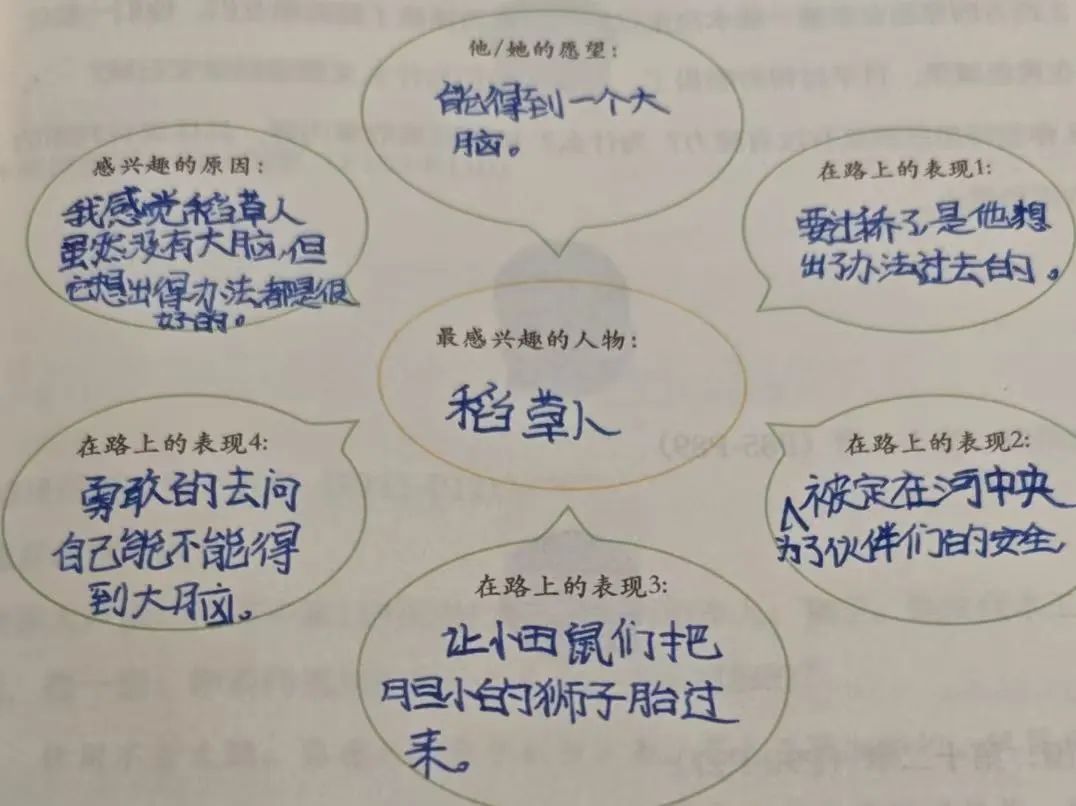 他/她的愿望：
能得到一个大
脑。
感兴趣的原因：
我感觉稻草人
虽然没有大脑，但
它想出得办法都是很
好的。
在路上的表现1：
要过桥了，是他想
出了办法过去的。
最感兴趣的人物：
稻草人
在路上的表现4：
勇敢的去问
自己能不能得
到大脑。
在路上的表现2：
被定在河中央
为了伙伴们的安全，
在路上的表现3：
让小田鼠们把
胆小的狮子胎过
来。
(P85-P89)